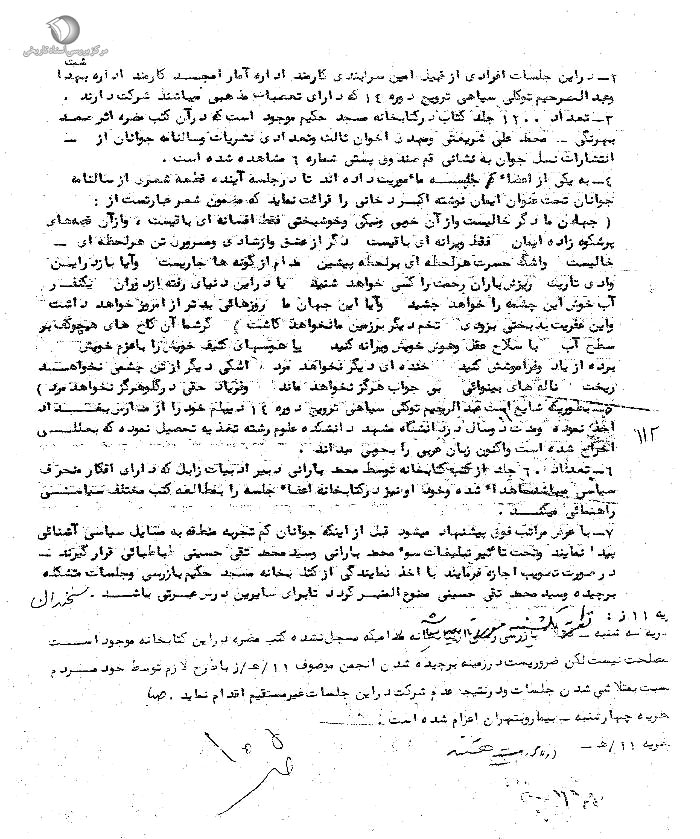 مرکز بررسی اسناد تاریخی
۲ـ در این جلسات افرادی از قبیل امین سرابندی کارمند اداره آمار امجسد کارمند اداره بهدا شت
وعبدالرحیم توکلی سپاهی ترویج دوره ۱۴ که دارای تعصبات مذهبی میباشند شرکت دارند .
۳ـ تعداد ۱۲۰۰ جلد کتاب در کتابخانه مسجد حکیم موجود است که در آن کتب مضره اثر صمد
بهرنگی ـ محمد علی شریعتی ومهدی اخوان ثالث وتعدادی نشریات وسالنامه جوانان از ـ
انتشارات نسل جوان به نشانی قم صندوق پستی شماره ۶ مشاهده شده است .
۴ـ به یکی از اعضاء جلسه مأموریت داده اند تا در جلسه آینده قطعه شعری از سالنامه
جوانان تحت عنوان ایمان نوشته اکبر دخانی را قرائت نماید که مضمون شعر عبارتست از :
( جهان ما دگر خالیست واز آن خوبی ونیکی وخوشبختی فقط افسانه ای باقیست ، واز آن قصه‌های
پرشکوه زاده ایمان فقط ویرانه ای باقیست دگر از عشق وازشادی وسرور تن هر لحظه ای ـ
خالیست واشک حسرت هر لحظه ای بر لحظه پیشین مدام از گونه ها جاریست وآیا باز در این
وادی تاریک ریزش باران رحمت را کسی خواهد شنید یا در این دنیای رفته از دوران یکنفر
آب خوش این چشمه را خواهد چشید وآیا این جهان ما روزهائی بدتر از امروز خواهد داشت
واین عفریت بدبختی بزودی تخم دیگر بر زمین ما نخواهد کاشت ) گر شما آن کاخ های همچو کف بر
سطح آب با سلاح عقل وهوش خویش ویرانه کنید یا هوسهای کثیف خویش را باعزم خویش
برده از یاد وفراموشش کنید خنده ای دیگر نخواهد مرد ، اشکی دیگر از تن چشمی نخواهد
ریخت ناله های بینوائی بی جواب هرگز نخواهد ماند وفریاد حقی در گلو هرگز نخواهد مرد )
بطوریکه شایع است عبدالرحیم توکلی سپاهی ترویج دوره ۱۴ دیپلم خود را از مدارس بغداد
اخذ نموده ومدت دوسال در دانشگاه مشهد دانشکده علوم رشته تغذیه تحصیل نموده که بعللی
اخراج شده است واکنون زبان عربی را بخوبی میداند .
۱۱۲
۶ـ تعداد ۶۰ جلد از کتب کتابخانه توسط محمد بارانی دبیر ادبیات زابل که دارای افکار منحرف
سیاسی میباشد اهداء شده وخود او نیز در کتابخانه اعضاء جلسه را بمطالعه کتب مختلف سیاسی
راهنمائی میکند .
۷ـ با عرض مراتب فوق پیشنهاد میشود قبل از اینکه جوانان کم تجربه منطقه به مسایل سیاسی آشنائی
پیدا نمایند وتحت تأثیر تبلیغات سوء محمد بارانی وسید محمد تقی حسینی طباطبائی قرار گیرند ـ
در صورت تصویب اجازه فرمایند با اخذ نمایندگی از کتابخانه مسجد حکیم بازرسی وجلسات متشکله
برچیده وسید محمد تقی حسینی ممنوع المنبر گردد تا برای سایرین درس عبرتی باشد .
نظریه سه شنبه ـ کتابخانه مادامیکه مسجل نشده کتب مضره در این کتابخانه موجود است
مصلحت نیست لکن ضروریست در زمینه برچیده شدن انجمن موصوف ۱۱/هـ/ز باطرح لازم توسط خود مردم
نسبت بمتلاشی شدن جلسات ودرنتیجه عدم شرکت در این جلسات غیرمستقیم اقدام نماید .
نظریه چهارشنبه ـ بیمار وبتهران اعزام شده است .
نظریه ۱۱/هـ ـ